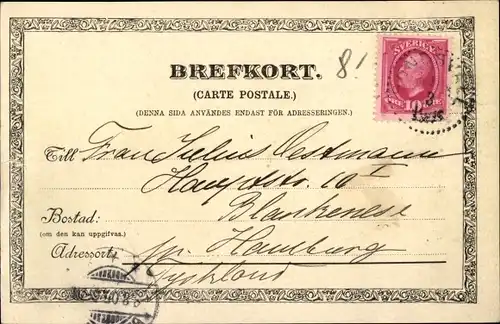 81
SVERIGE
BREFKORT.
(CARTE POSTALE.)
(DENNA SIDA ANVÄNDES ENDAST FÖR ADRESSERINGEN.)
Till Frau Julius Oestmann
Hauptstr. 10 I
Bostad: Blankenese
(om den kan uppgifvas.)
Adressort: pr. Hamburg
Tyskland